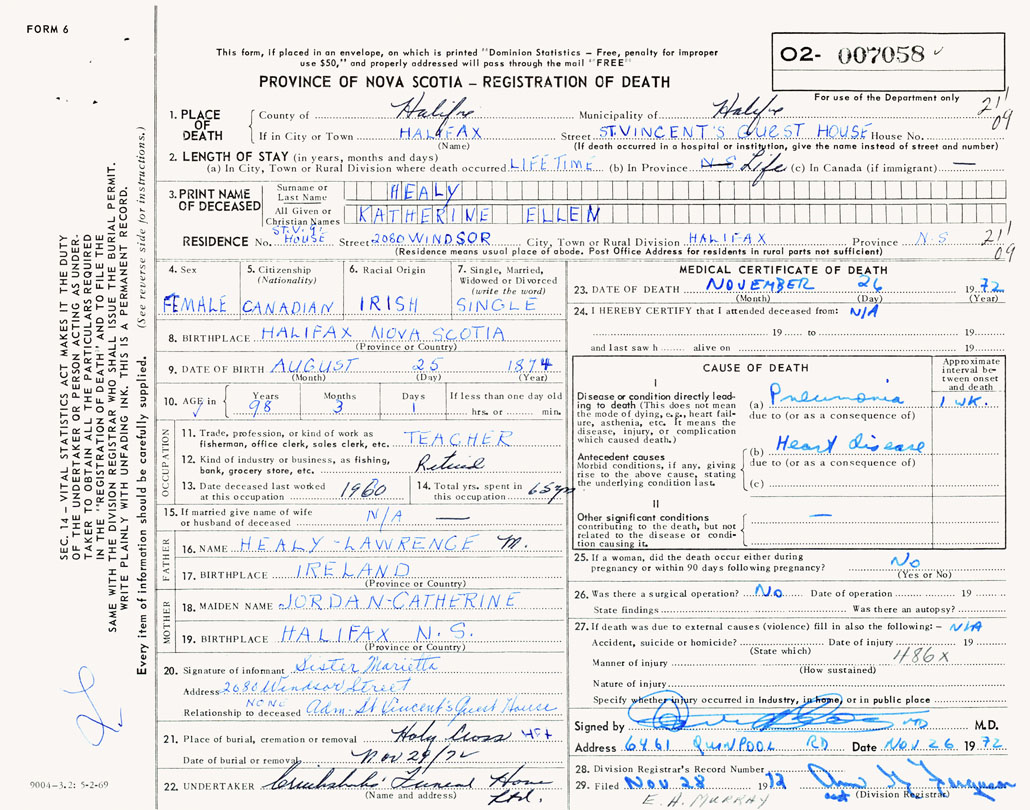 FORM 6
This form, if placed in an envelope, on which is printed "Dominion Statistics – Free, penalty for improper
use $50," and properly addressed will pass through the mail "FREE"
O2- 007058
PROVINCE OF NOVA SCOTIA – REGISTRATION OF DEATH
For use of the Department only
1. PLACE OF DEATH
County of Halifax Municipality of Halifax 21'
If in City or Town HALIFAX Street ST. VINCENT'S GUEST HOUSE House No. 09
(Name) (If death occurred in a hospital or institution, give the name instead of street and number)
2. LENGTH OF STAY (in years, months and days)
(a) In City, Town or Rural Division where death occurred LIFETIME (b) In Province N-S Life (c) In Canada (if immigrant) —
3. PRINT NAME OF DECEASED
Surname or Last Name HEALY
All Given or Christian Names KATHERINE ELLEN
RESIDENCE No. ST. V. G. HOUSE Street 2080 WINDSOR City, Town or Rural Division HALIFAX Province N-S 21' 09
(Residence means usual place of abode. Post Office Address for residents in rural parts not sufficient)
4. Sex
FEMALE
5. Citizenship
(Nationality)
CANADIAN
6. Racial Origin
IRISH
7. Single, Married,
Widowed or Divorced
(write the word)
SINGLE
8. BIRTHPLACE HALIFAX NOVA SCOTIA
(Province or Country)
9. DATE OF BIRTH AUGUST 25 1874
(Month) (Day) (Year)
10. AGE in Years Months Days If less than one day old
98 3 1 hrs. or min.
OCCUPATION
11. Trade, profession, or kind of work as
fisherman, office clerk, sales clerk, etc. TEACHER
12. Kind of industry or business, as fishing,
bank, grocery store, etc. Retired
13. Date deceased last worked
at this occupation 1960
14. Total yrs. spent in
this occupation 65 yrs
15. If married give name of wife
or husband of deceased N/A —
FATHER
16. NAME HEALY - LAWRENCE M.
17. BIRTHPLACE IRELAND
(Province or Country)
MOTHER
18. MAIDEN NAME JORDAN - CATHERINE
19. BIRTHPLACE HALIFAX N.S.
(Province or Country)
20. Signature of informant Sister Marietta
Address 2080 Windsor Street
NONE
Relationship to deceased Adm. St Vincent's Guest House
21. Place of burial, cremation or removal Holy Cross Hfx
Date of burial or removal Nov 29/72
22. UNDERTAKER Cruikshank's Funeral Home Ltd.
(Name and address)
MEDICAL CERTIFICATE OF DEATH
23. DATE OF DEATH NOVEMBER 26 1972
(Month) (Day) (Year)
24. I HEREBY CERTIFY that I attended deceased from: N/A
19 to 19
and last saw h alive on 19
CAUSE OF DEATH
Approximate
interval be-
tween onset
and death
I
Disease or condition directly lead-
ing to death (This does not mean
the mode of dying, e.g., heart fail-
ure, asthenia, etc. It means the
disease, injury, or complication
which caused death.)
(a) Pneumonia 1 wk.
due to (or as a consequence of)
Antecedent causes
Morbid conditions, if any, giving
rise to the above cause, stating
the underlying condition last.
(b) Heart disease
due to (or as a consequence of)
(c)
II
Other significant conditions
contributing to the death, but not
related to the disease or condi-
tion causing it. —
25. If a woman, did the death occur either during
pregnancy or within 90 days following pregnancy? No
(Yes or No)
26. Was there a surgical operation? No. Date of operation 19
State findings Was there an autopsy?
27. If death was due to external causes (violence) fill in also the following: – N/A
Accident, suicide or homicide? Date of injury 19
(State which)
Manner of injury 486x
(How sustained)
Nature of injury
Specify whether injury occurred in Industry, in home, or in public place
Signed by MD M.D.
Address 6461 QUINPOOL RD Date NOV. 26 1972
28. Division Registrar's Record Number
29. Filed NOV 28 1972 Ferguson
(Division Registrar)
E. A. MURRAY
SEC. 14 – VITAL STATISTICS ACT MAKES IT THE DUTY
OF THE UNDERTAKER OR PERSON ACTING AS UNDER-
TAKER TO OBTAIN ALL THE PARTICULARS REQUIRED
IN THE "REGISTRATION OF DEATH" AND TO FILE THE
SAME WITH THE DIVISION REGISTRAR WHO SHALL ISSUE THE BURIAL PERMIT.
WRITE PLAINLY WITH UNFADING INK. THIS IS A PERMANENT RECORD.
Every item of information should be carefully supplied. (See reverse side for instructions.)
9004–3.2: 5-2-69